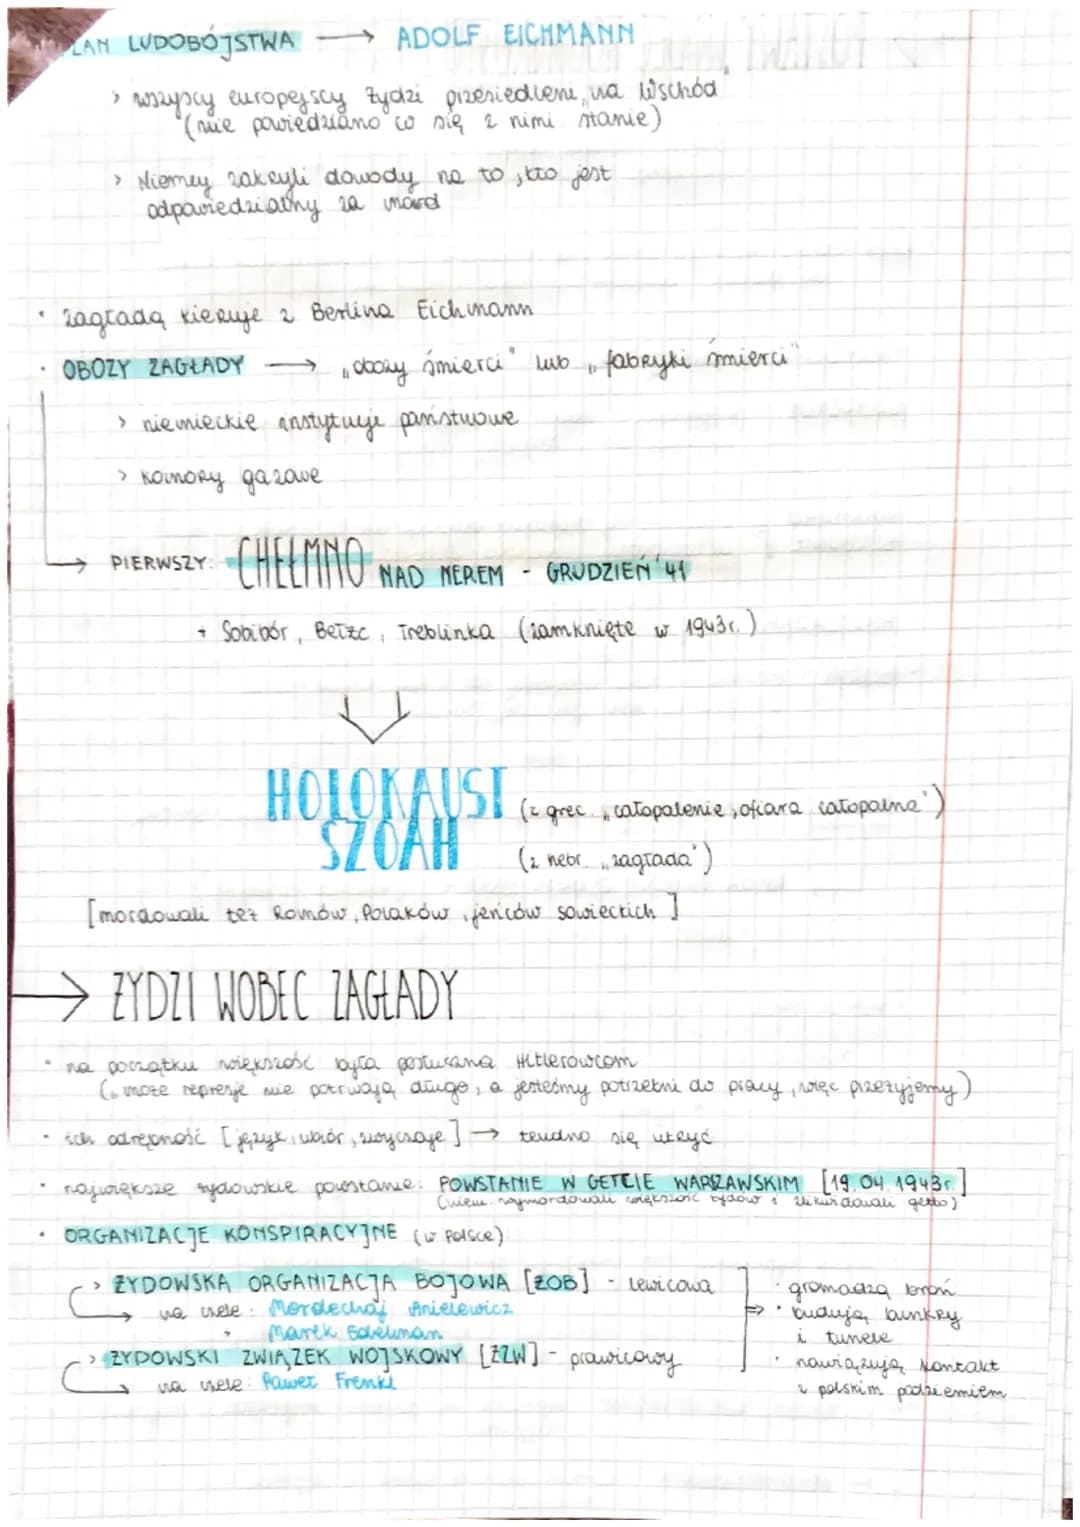 PLAN LUDOBÓJSTWA → ADOLF EICHMANN
> wszyscy europejscy Żydzi przesiedleni „na Wschód
(nie powiedziano co się z nimi stanie)
> Niemcy zakryli dowody na to, kto jest
odpowiedzialny za mord
• zagładą kieruje z Berlina Eichmann
• OBOZY ZAGŁADY → „obozy śmierci" lub „fabryki śmierci"
> niemieckie instytucje państwowe
> komory gazowe
→ PIERWSZY: CHEŁMNO NAD NEREM - GRUDZIEŃ '41
+ Sobibór, Bełżc, Treblinka (zamknięte w 1943r.)
HOLOKAUST (z grec. „całopalenie, ofiara całopalna")
SZOAH (z hebr. „zagłada")
[mordowali też Romów, Polaków, jeńców sowieckich]
→ ŻYDZI WOBEC ZAGŁADY
• na początku większość była posłuszna Hitlerowcom
(„może represje nie potrwają długo, a jesteśmy potrzebni do pracy, więc przeżyjemy)
• ich odrębność [język, ubiór, zwyczaje] → trudno się ukryć
• największe żydowskie powstanie: POWSTANIE W GETCIE WARSZAWSKIM [19.04.1943r.]
wymordowali większość żydów i zlikwidowali getto)
• ORGANIZACJE KONSPIRACYJNE (w Polsce)
> ŻYDOWSKA ORGANIZACJA BOJOWA [ŻOB] - lewicowa
→ na czele: Mordechaj Anielewicz
• Marek Edelman
> ŻYDOWSKI ZWIĄZEK WOJSKOWY [ŻZW] - prawicowy
→ na czele: Paweł Frenkl
⇒ • gromadzą broń
• budują bunkry
i tunele
• nawiązują kontakt
z polskim podziemiem